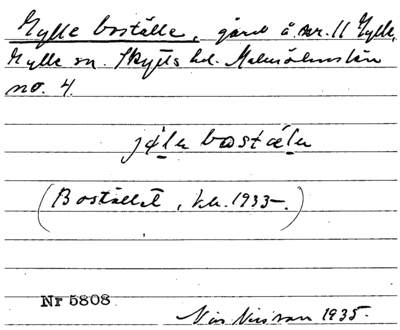 Hylle boställe, gård å nr. 11 Hylle,
Hylle sn. Skytts hd. Malmöhus län
no. 4.
jɸ́lɐ bωstǽlɐ
(Bostället, kb. 1933–.)
Nr 5808
Nils Nilsson 1935.